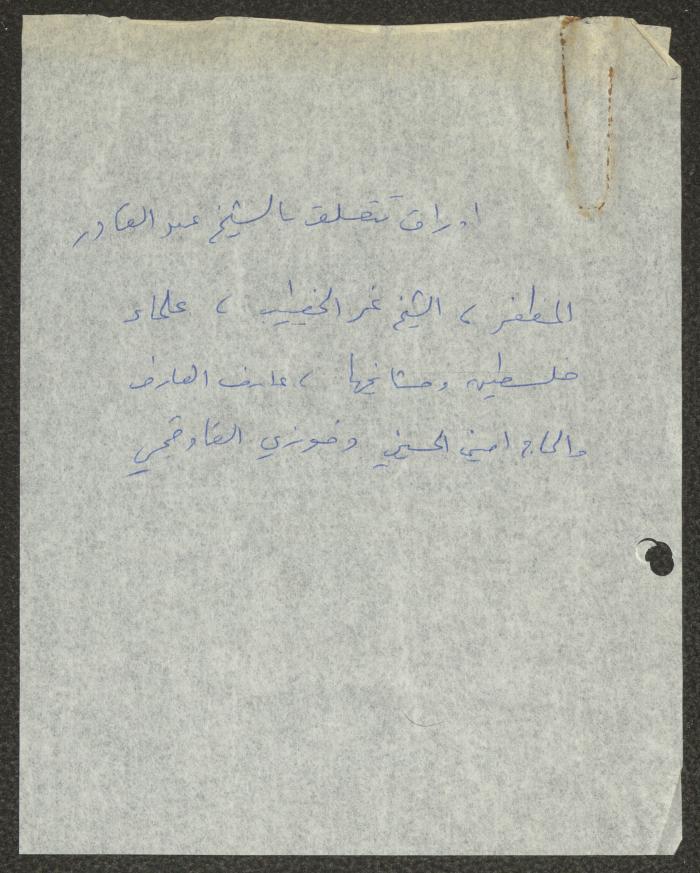 اوراق تتعلق بالشيخ عبد القادر
المظفر ، الشيخ نمر الخطيب ، علماء
فلسطين ومشايخها ، عارف العارف
والحاج امين الحسيني وفوزي القاوقجي